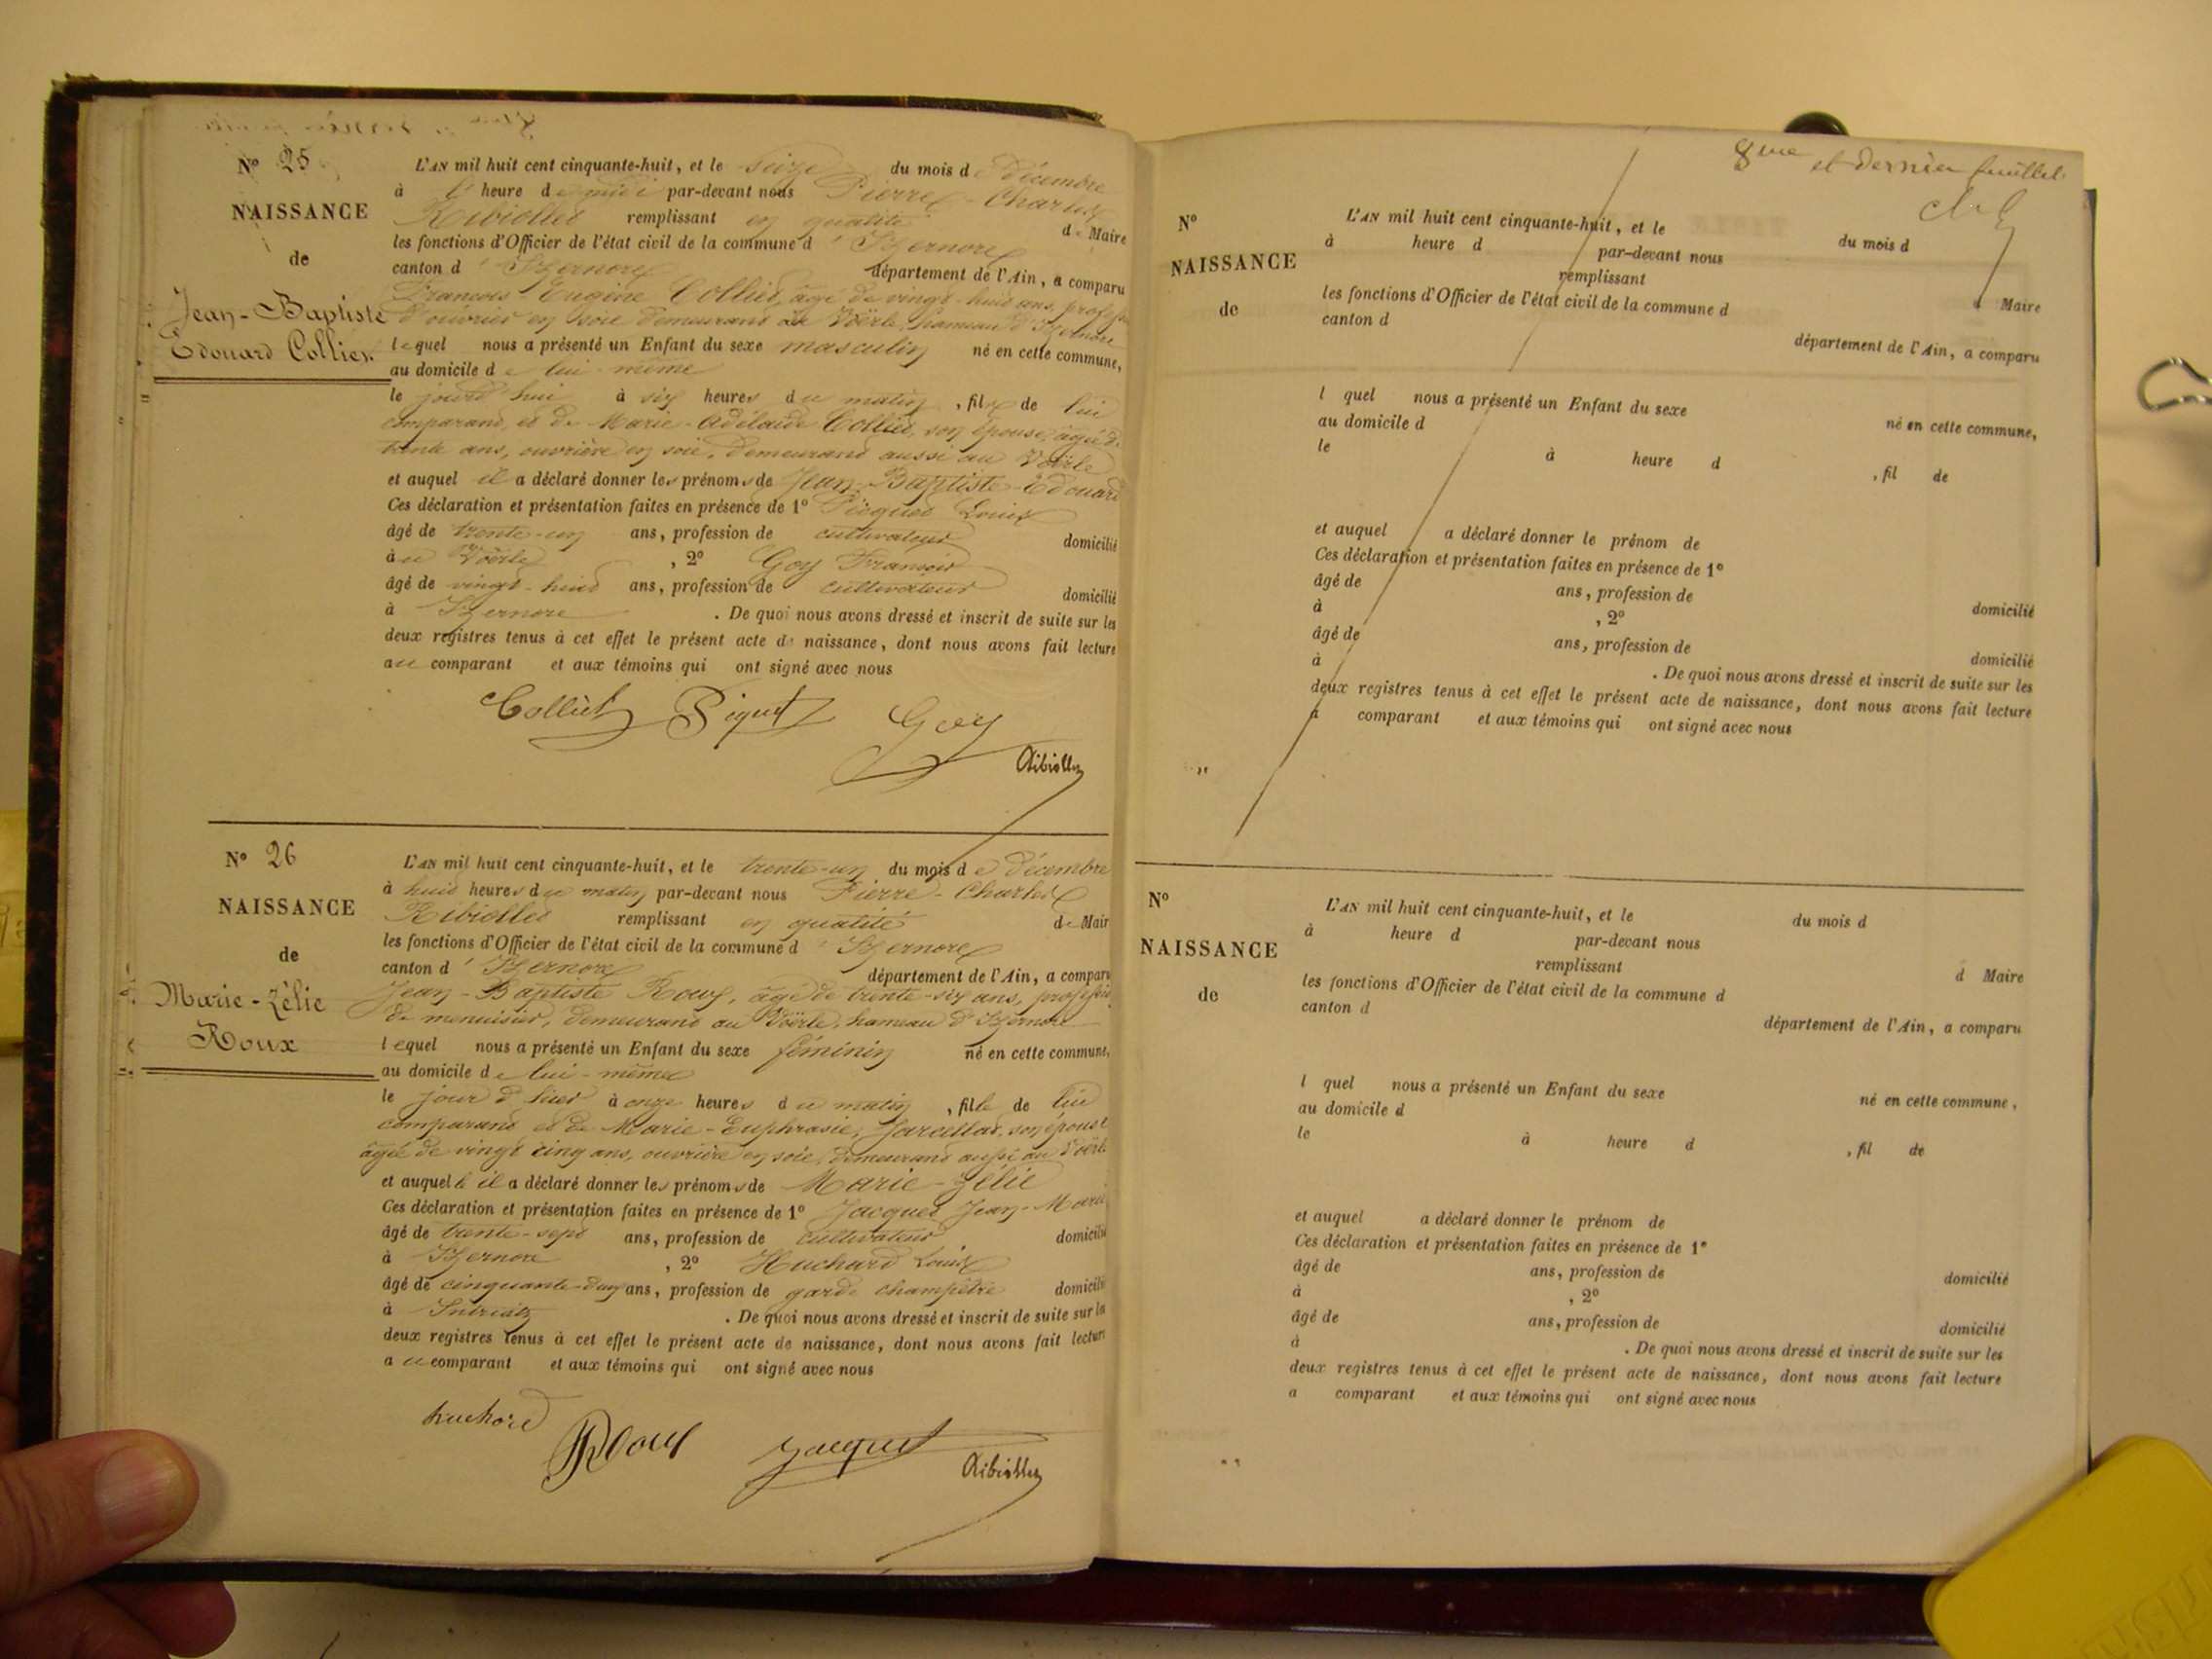 N° 25
NAISSANCE
de
Jean-Baptiste
Edouard Colliet.
L'AN mil huit cent cinquante-huit, et le seize du mois de décembre
à l' heure de midi par-devant nous Pierre-Charles
Ribiollet remplissant en qualité de Maire
les fonctions d'Officier de l'état civil de la commune d'Izernore
canton d'Izernore département de l'Ain, a comparu
François-Eugène Colliet, âgé de vingt-huit ans, profession
d'ouvrier en soie demeurant au Voërle, hameau d'Izernore
lequel nous a présenté un Enfant du sexe masculin né en cette commune,
au domicile de lui-même
le jourd'hui à six heures du matin, fils de lui
comparant, et de Marie-Adélaïde Colliet, son épouse, âgée de
trente ans, ouvrière en soie, demeurant aussi au Voërle
et auquel il a déclaré donner les prénoms de Jean-Baptiste-Edouard
Ces déclaration et présentation faites en présence de 1° Piéquet Louis
âgé de trente-un ans, profession de cultivateur domicilié
à au Voërle, 2° Goy François
âgé de vingt-huit ans, profession de cultivateur domicilié
à Izernore. De quoi nous avons dressé et inscrit de suite sur les
deux registres tenus à cet effet le présent acte de naissance, dont nous avons fait lecture
au comparant et aux témoins qui ont signé avec nous
Colliet Piquet Goy
Ribiollet
N° 26
NAISSANCE
de
Marie-Zélie
Roux
L'AN mil huit cent cinquante-huit, et le trente-un du mois de décembre
à huit heures du matin par-devant nous Pierre-Charles
Ribiollet remplissant en qualité de Mair
les fonctions d'Officier de l'état civil de la commune d'Izernore
canton d'Izernore département de l'Ain, a comparu
Jean-Baptiste Roux, âgé de trente-six ans, profession
de menuisier, demeurant au Voërle, hameau d'Izernore
lequel nous a présenté un Enfant du sexe féminin né en cette commune,
au domicile de lui-même
le jour d'hier à onze heures du matin, fille de lui
comparant et de Marie-Euphrasie, Jarcellat, son épouse
âgée de vingt cinq ans, ouvrière en soie, demeurant aussi au Voërle
et auquel il a déclaré donner les prénoms de Marie-Zélie
Ces déclaration et présentation faites en présence de 1° Jacquet Jean-Marie
âgé de trente-sept ans, profession de cultivateur domicilié
à Izernore, 2° Huchard Louis
âgé de cinquante-deux ans, profession de garde champêtre domicilié
à Intriatz. De quoi nous avons dressé et inscrit de suite sur les
deux registres tenus à cet effet le présent acte de naissance, dont nous avons fait lecture
au comparant et aux témoins qui ont signé avec nous
huchard Roux Jacquet
Ribiollet
8me et dernier feuillet.
N°
NAISSANCE
de
L'AN mil huit cent cinquante-huit, et le du mois d
à heure d par-devant nous
remplissant d Maire
les fonctions d'Officier de l'état civil de la commune d
canton d département de l'Ain, a comparu
l quel nous a présenté un Enfant du sexe né en cette commune,
au domicile d
le à heure d, fil de
et auquel a déclaré donner le prénom de
Ces déclaration et présentation faites en présence de 1°
âgé de ans, profession de domicilié
à, 2°
âgé de ans, profession de domicilié
à. De quoi nous avons dressé et inscrit de suite sur les
deux registres tenus à cet effet le présent acte de naissance, dont nous avons fait lecture
a comparant et aux témoins qui ont signé avec nous
N°
NAISSANCE
de
L'AN mil huit cent cinquante-huit, et le du mois d
à heure d par-devant nous
remplissant d Maire
les fonctions d'Officier de l'état civil de la commune d
canton d département de l'Ain, a comparu
l quel nous a présenté un Enfant du sexe né en cette commune,
au domicile d
le à heure d, fil de
et auquel a déclaré donner le prénom de
Ces déclaration et présentation faites en présence de 1°
âgé de ans, profession de domicilié
à, 2°
âgé de ans, profession de domicilié
à. De quoi nous avons dressé et inscrit de suite sur les
deux registres tenus à cet effet le présent acte de naissance, dont nous avons fait lecture
a comparant et aux témoins qui ont signé avec nous